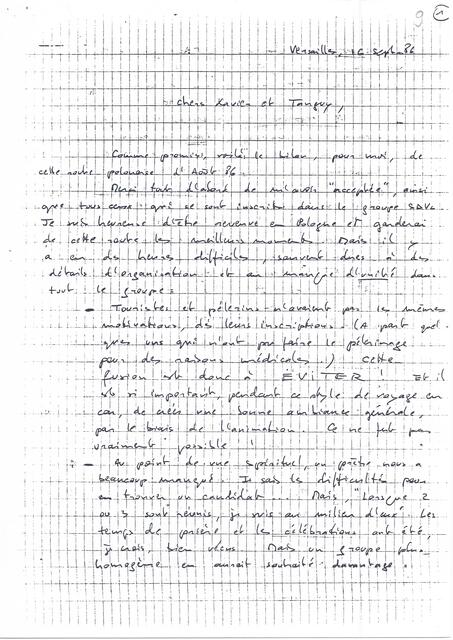 9 1
Versailles, 16 Sept. 86
Chers Xavier et Tanguy,
Comme promis, voilà le bilan, pour moi, de
cette route polonaise d'Août 86.
Merci tout d'abord de m'avoir "acceptée", ainsi
que tous ceux qui se sont inscrits dans le groupe
Je suis heureuse d'être revenue en Pologne et garderai
de cette route les meilleurs moments. Mais il y
a eu des heures difficiles, souvent dues à des
détails d'organisation et au manque d'unité dans
tout le groupe :
- Touristes et pèlerins n'avaient pas les mêmes
motivations, dès leurs inscriptions. (A part quel
ques uns qui n'ont pu faire le pèlerinage
pour des raisons médicales !) Cette
fusion est donc à EVITER ! Et il
est si important, pendant ce style de voyage en
car, de créer une bonne ambiance générale,
par le biais de l'animation. Ce ne fut pas
vraiment possible !
- Au point de vue spirituel, un prêtre nous a
beaucoup manqué. Je sais les difficultés pour
en trouver un candidat... Mais, "Lorsque 2
ou 3 sont réunis, je suis au milieu d'eux". Les
temps de prière et les célébrations ont été,
je crois, bien vécus. Mais un groupe plus
homogène en aurait souhaité davantage.